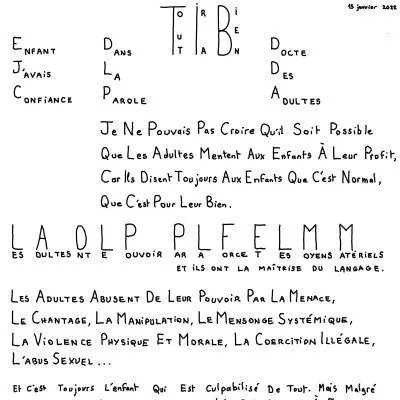 15 janvier 2022
Tout Ira Bien
Enfant Dans Docte
J'avais La Des
Confiance Parole Adultes
Je Ne Pouvais Pas Croire Qu'il Soit Possible
Que Les Adultes Mentent Aux Enfants À Leur Profit,
Car Ils Disent Toujours Aux Enfants Que C'est Normal,
Que C'est Pour Leur Bien.
Les Adultes Ont Le Pouvoir Par La Force Et Les Moyens Matériels
et ils ont la maîtrise du langage.
Les Adultes Abusent De Leur Pouvoir Par La Menace,
Le Chantage, La Manipulation, Le Mensonge Systémique,
La Violence Physique Et Morale, La Coercition Illégale,
L'abus Sexuel...
Et c'est Toujours L'enfant Qui Est Culpabilisé De Tout. Mais Malgré